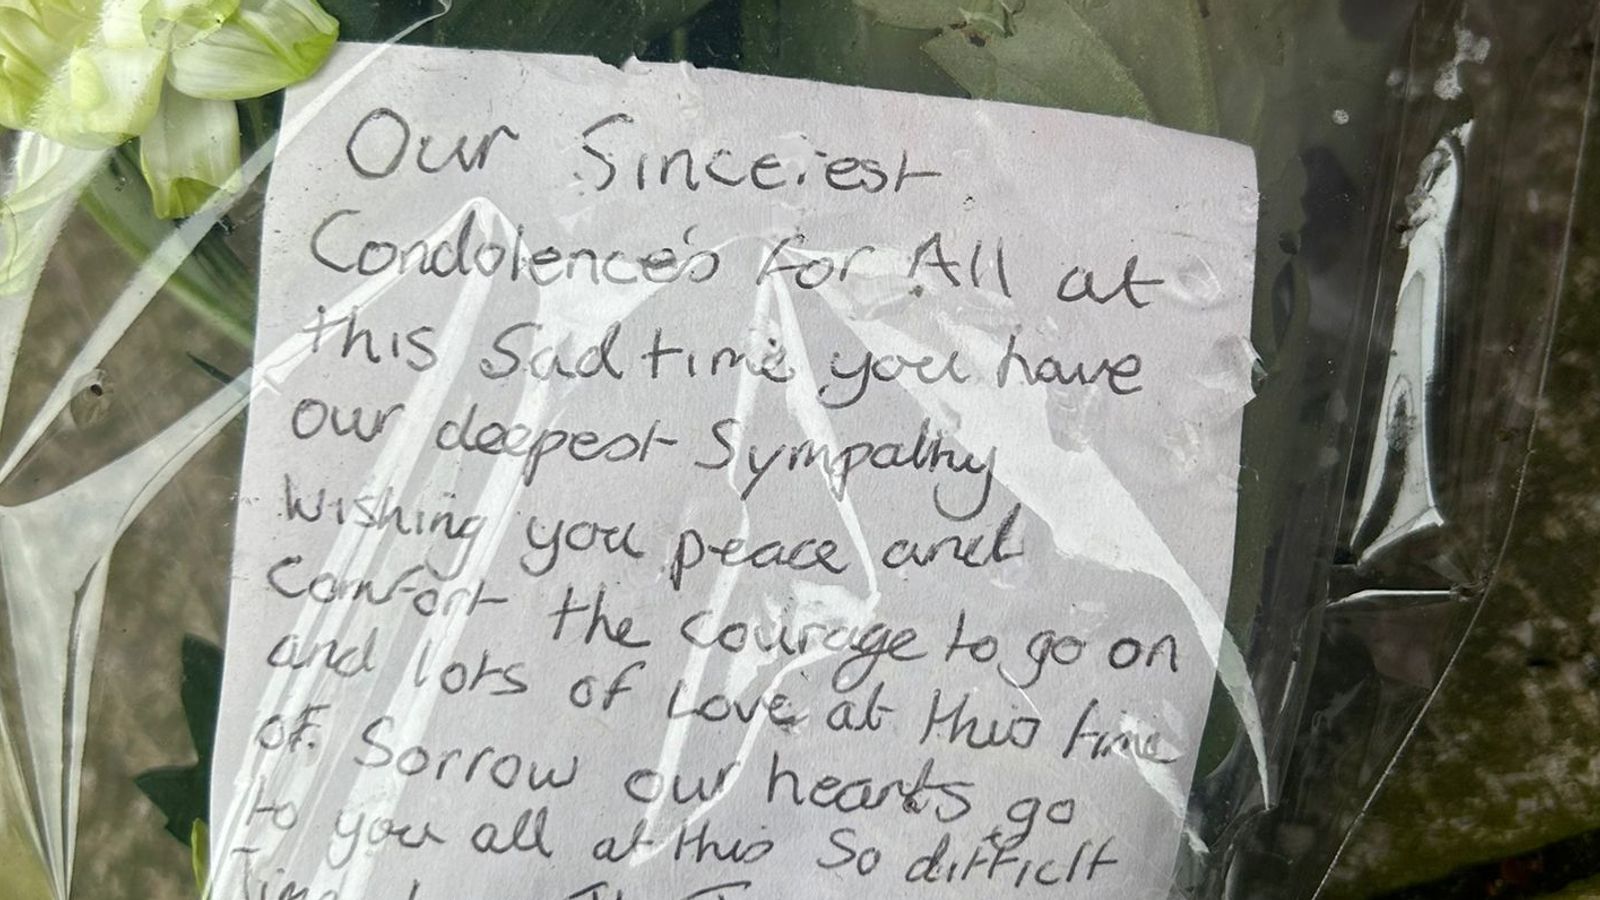 Our Sincerest
Condolence's for All at
this Sad time you have
our deepest Sympathy
Wishing you peace and
Comfort the courage to go on
and lots of Love at this time
of Sorrow our hearts go
to you all at this So difficlt
Time